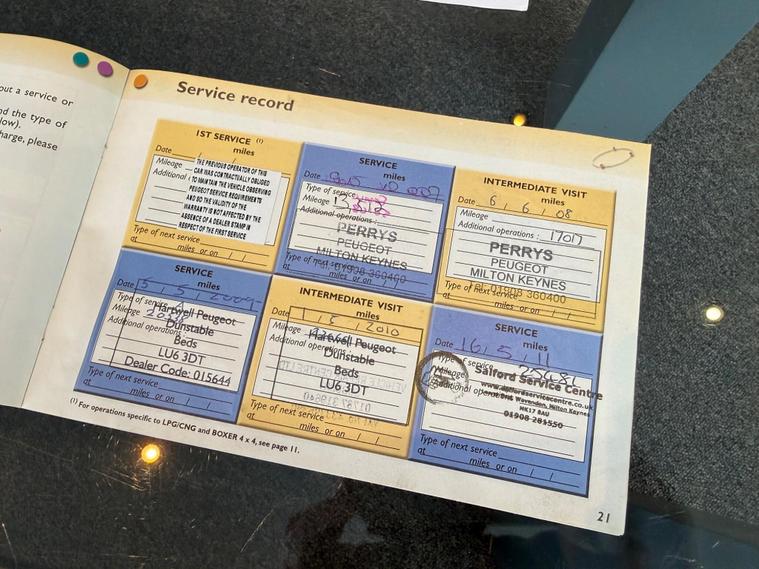 out a service or
nd the type of
low).
harge, please
Service record
1ST SERVICE (1)
miles
Date
Mileage
Additional
THE PREVIOUS OPERATOR OF THIS
CAR WAS CONTRACTUALLY OBLIGED
TO MAINTAIN THE VEHICLE OBSERVING
PEUGEOT SERVICE REQUIREMENTS
AND SO THE VALIDITY OF THE
WARRANTY IS NOT AFFECTED BY THE
ABSENCE OF A DEALER STAMP IN
RESPECT OF THE FIRST SERVICE
Type of next service
at miles or on / /
SERVICE
miles
Date
Type of service
Mileage
Additional operations :
PERRYS
PEUGEOT
MILTON KEYNES
Tel: 01908 360400
Type of next service
at miles or on / /
INTERMEDIATE VISIT
miles
Date 6 / 6 / 08
Mileage 17017
Additional operations :
PERRYS
PEUGEOT
MILTON KEYNES
Tel: 01908 360400
Type of next service
at miles or on / /
SERVICE
miles
Date 15 / 5 / 2009
Type of service
Mileage
Additional operations
Hartwell Peugeot
Dunstable
Beds
LU6 3DT
Dealer Code: 015644
Type of next service
at miles or on / /
INTERMEDIATE VISIT
miles
Date 1 / 5 / 2010
Mileage
Additional operations
Hartwell Peugeot
Dunstable
Beds
LU6 3DT
Type of next service
at miles or on / /
SERVICE
miles
Date 16 / 5 / 11
Type of service
Mileage
Additional operations
Salford Service Centre
Wavendon, Milton Keynes
MK17 8AU
01908 281550
Type of next service
at miles or on / /
(1) For operations specific to LPG/CNG and BOXER 4 x 4, see page 11.
21